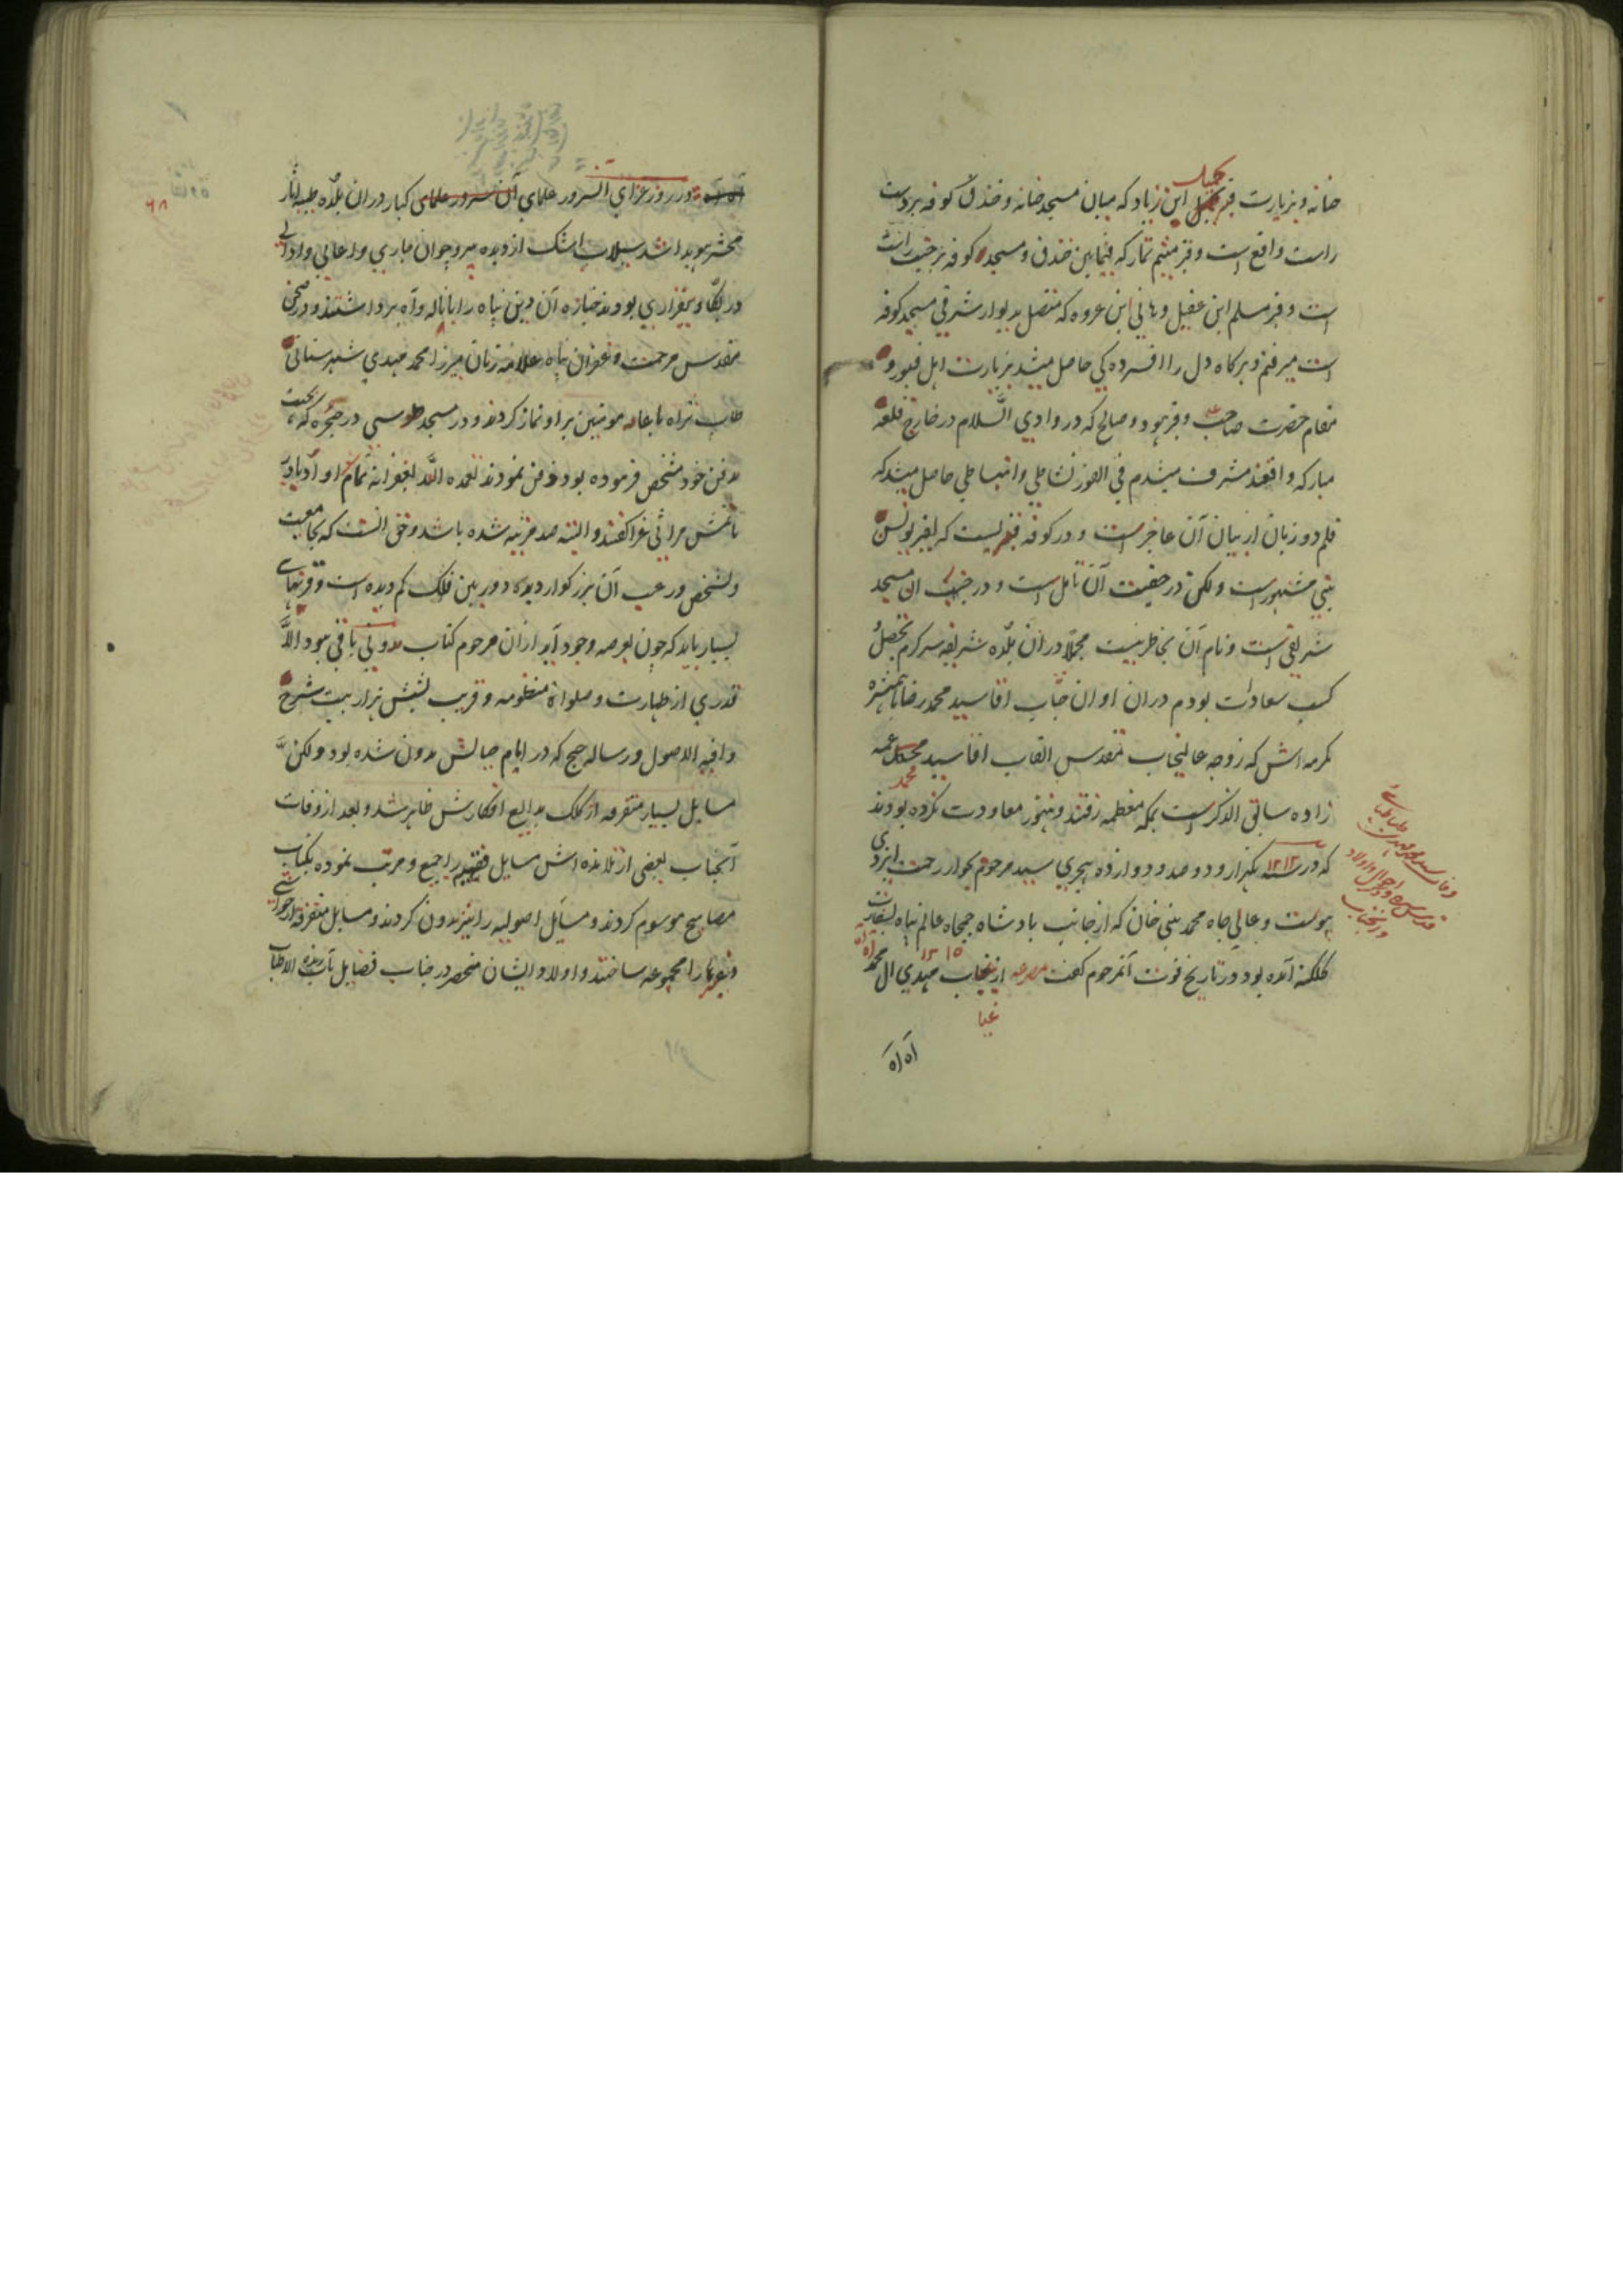 حنانه و بزیارت قبر کمیل ابن زیاد که میان مسجد حنانه و خندق کوفه بردست
راست واقع است و قبر میثم تمار که فیمابین خندق و مسجد کوفه بر جنب راست
است و قبر مسلم ابن عقیل و هانی ابن عروه که متصل بدیوار شرقی مسجد کوفه
است میرفتم و هرکاه دل را افسرده کی حاصل میشد بزیارت اهل قبور و
مقام حضرت صاحب و قبر هود و صالح که در وادی السَّلام در خارج قلعه
مبارکه واقعند مشرف میشدم فی الفور نشاطی و انبساطی حاصل میشد که
قلم دو زبان از بیان آن عاجز است و در کوفه قبریست که بقبر یونس
نبی مشهور است ولکن در حقیقت آن تامل است و در جنب ان مسجد
شریفی است و نام آن بخاطر نیست مجملا در ان بلده شریفه سرکرم تحصیل
کسب سعادات بودم در ان اوان جناب اقا سید محمد رضا با همشیره
مکرمه اش که زوجه عالیجاب مقدس القاب اقا سید محمد عمه
زاده سابق الذکر است بمکه معظمه رفتند و هنوز معاودت نکرده بودند
که در سنه ۱۲۱۲ یکهزار و دو صد و دوازده هجری سید مرحوم بجوار رحمت ایزدی
پیوست و عالی جاه محمد نبی خان که از جانب بادشاه جمجاه عالم پناه بسفارت
کلکته آمده بود در تاریخ فوت آنمرحوم کفت مصرعه از غیاب مهدی ال محمد
آه آه
و در روز عزای السرور علمای کبار در ان بلده طیبه اثار
محشر هویدا شد سیلاب اشک از دیده پیر و جوان جاری و اعالی و ادانی
در بکا و بیقراری بودند جنازه آن دین پناه را با ناله و آه برداشتند و در صحن
مقدس مرحمت و غفران پناه علامه زمان میرزا محمد مهدی شهرستانی
طاب ثراه با عامه مومنین بر او نماز کردند و در مسجد طوسی در حجره که بجهت
مدفن خود مشخص فرموده بود دفن نمودند تغمده اللّه بغفرانه تمام
ماتمش مراثی غرا کفتند و البته صد مرثیه شده باشد و حق انست که بجامعیت
و تشخص و رعب آن بزرکوار دیده دور بین فلک کم دیده است و قرنهای
بسیار باید که چون بعرصه وجود آید از ان مرحوم کتاب مدونی باقی نبود الّا
قدری از طهارت و صلواة منظومه و قریب بشش هزار بیت شرح
وافیه الاصول و رساله حج که در ایام حیاتش مدون شده بود ولکن
مسایل بسیار متفرقه از کلک بدایع افکارش ظاهر شد و بعد از وفات
آنجناب بعضی از تلامذه اش مسایل فقهیه را جمع و مرتب نموده بکتاب
مصابیح موسوم کردند و مسایل اصولیه را نیز مدون کردند و مسایل متفرقه از حواشی
و غیرها را مجموعه ساختند و اولاد ایشان منحصر در جناب فضایل مآب الاطیاب